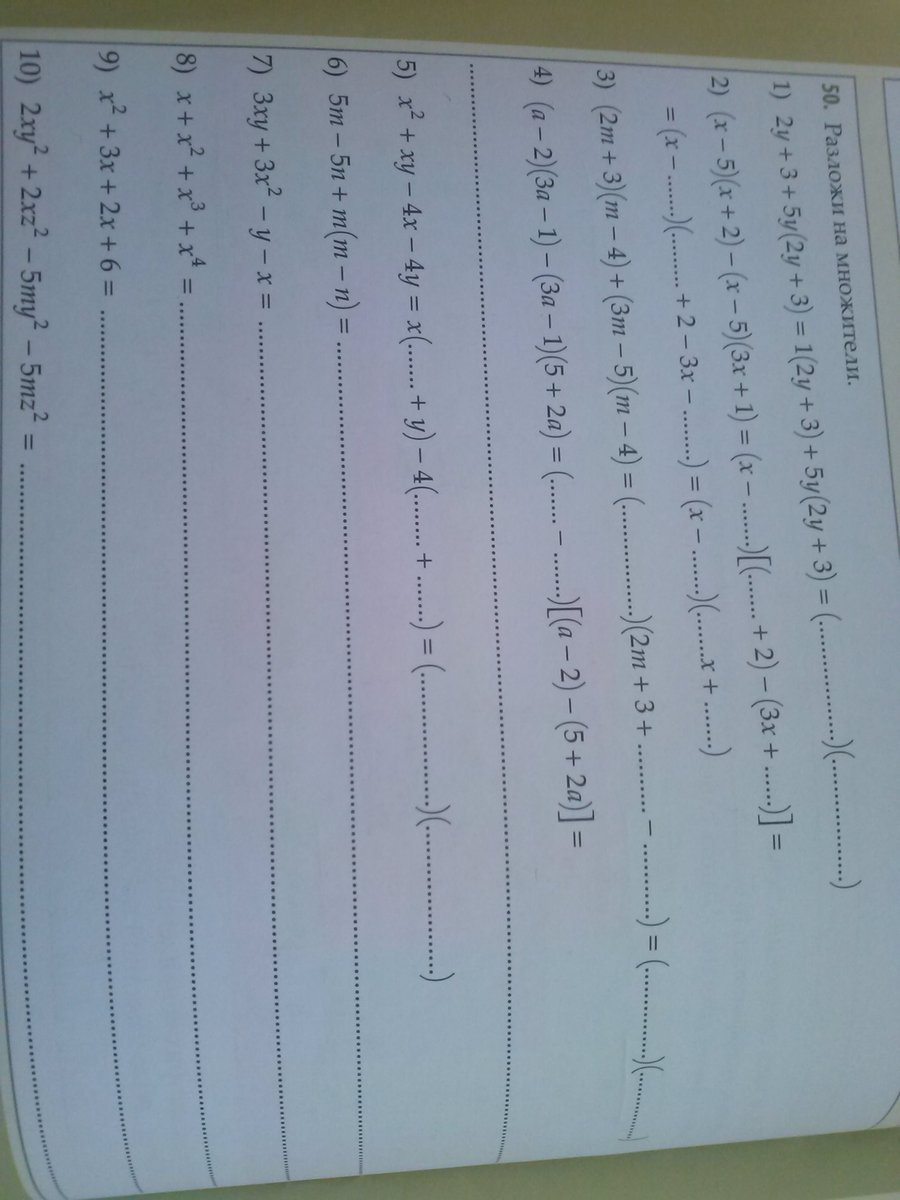 50. Разложи на множители.
1) 2y + 3 + 5y(2y + 3) = 1(2y + 3) + 5y(2y + 3) = (...............)(...............)
2) (x – 5)(x + 2) – (x – 5)(3x + 1) = (x – .......)[(....... + 2) – (3x + ......)] =
= (x – .......)(......... + 2 – 3x – .......) = (x – ......)(.......x + .......)
3) (2m + 3)(m – 4) + (3m – 5)(m – 4) = (.............)(2m + 3 + ......... – .........) = (............)(...........)
4) (a – 2)(3a – 1) – (3a – 1)(5 + 2a) = (...... – ......)[(a – 2) – (5 + 2a)] =
5) x² + xy – 4x – 4y = x(...... + y) – 4(....... + ......) = (...............)(.................)
6) 5m – 5n + m(m – n) =
7) 3xy + 3x² – y – x =
8) x + x² + x³ + x⁴ =
9) x² + 3x + 2x + 6 =
10) 2xy² + 2xz² – 5my² – 5mz² =